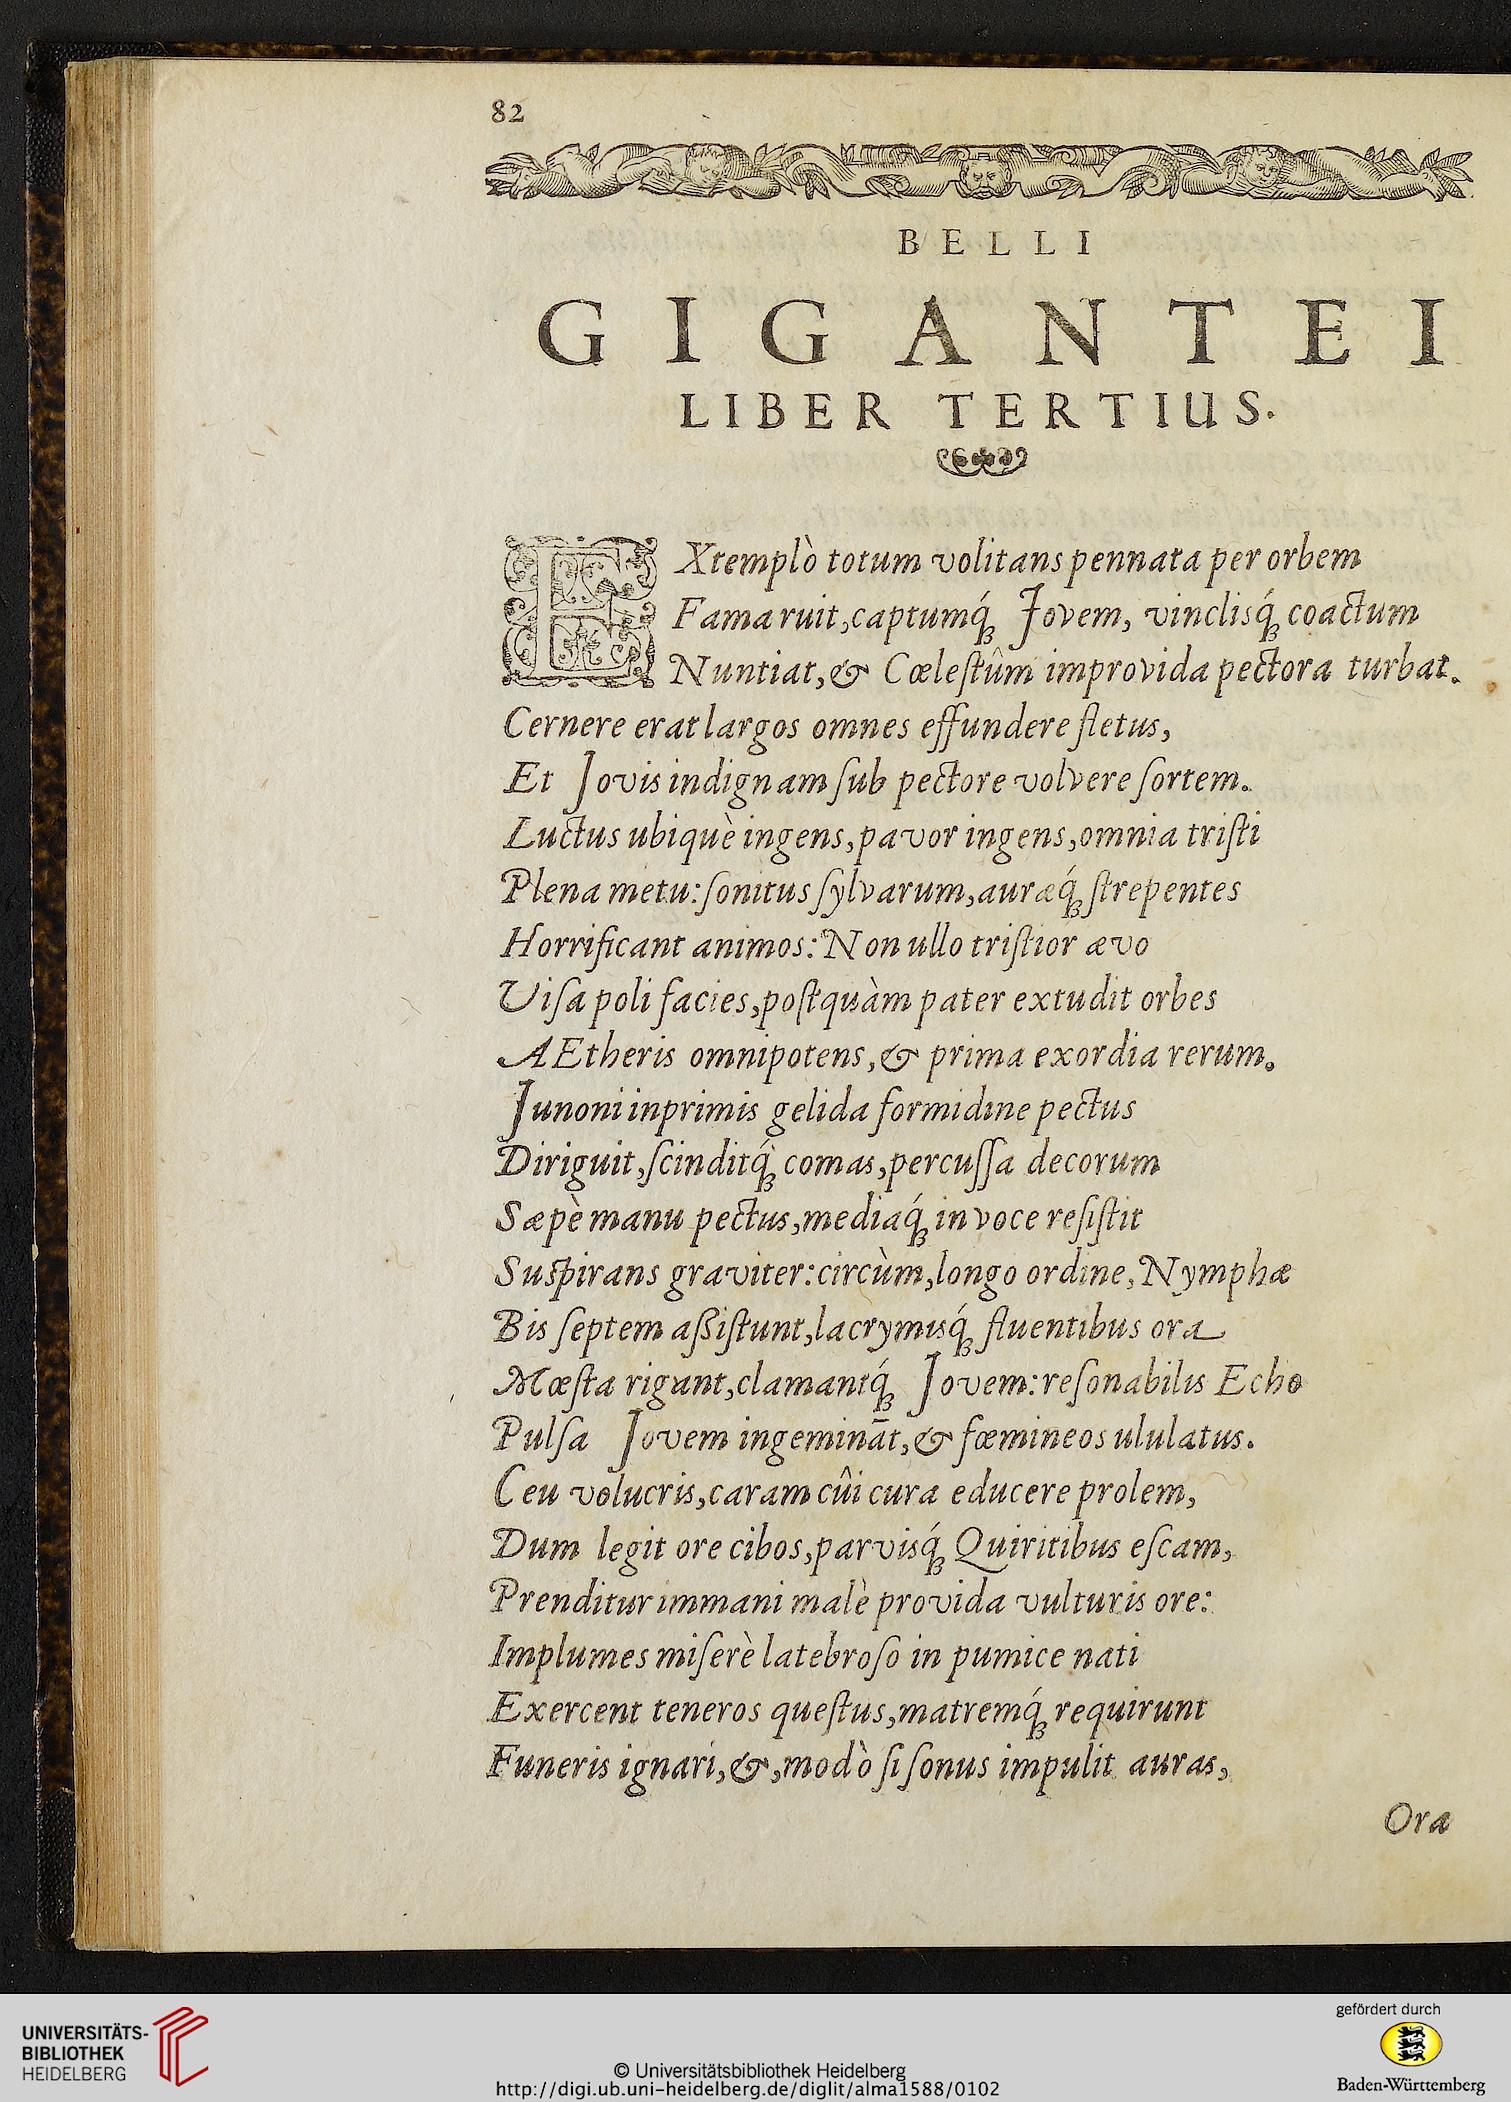 82
BELLI
GIGANTEI
LIBER TERTIUS.
EXtemplò totum volitans pennata per orbem
Fama ruit, captumq́ꝫ Jovem, vinclisq́ꝫ coactum
Nuntiat, & Cœleſtûm improvida pectora turbat.
Cernere erat largos omnes effundere fletus,
Et Jovis indignam ſub pectore volvere ſortem.
Luctus ubiquè ingens, pavor ingens, omnia triſti
Plena metu: ſonitus ſylvarum, auræq́ꝫ ſtrepentes
Horrificant animos: Non ullo triſtior ævo
Viſa poli facies, poſtquàm pater extudit orbes
AEtheris omnipotens, & prima exordia rerum.
Junoni inprimis gelida formidine pectus
Diriguit, ſcinditq́ꝫ comas, percuſſa decorum
Sæpè manu pectus, mediaq́ꝫ in voce reſiſtit
Suſpirans graviter: circùm, longo ordine, Nymphæ
Bis ſeptem aßiſtunt, lacrymisq́ꝫ fluentibus ora
Mœſta rigant, clamantq́ꝫ Jovem: reſonabilis Echo
Pulſa Jovem ingemināt, & fœmineos ululatus.
Ceu volucris, caram cûi cura educere prolem,
Dum legit ore cibos, parvisq́ꝫ Quiritibus eſcam,
Prenditur immani malè provida vulturis ore:
Implumes miſerè latebroſo in pumice nati
Exercent teneros queſtus, matremq́ꝫ requirunt
Funeris ignari, &, modò ſi ſonus impulit auras,
Ora
UNIVERSITÄTS-
BIBLIOTHEK
HEIDELBERG
© Universitätsbibliothek Heidelberg
http://digi.ub.uni-heidelberg.de/diglit/alma1588/0102
gefördert durch
Baden-Württemberg